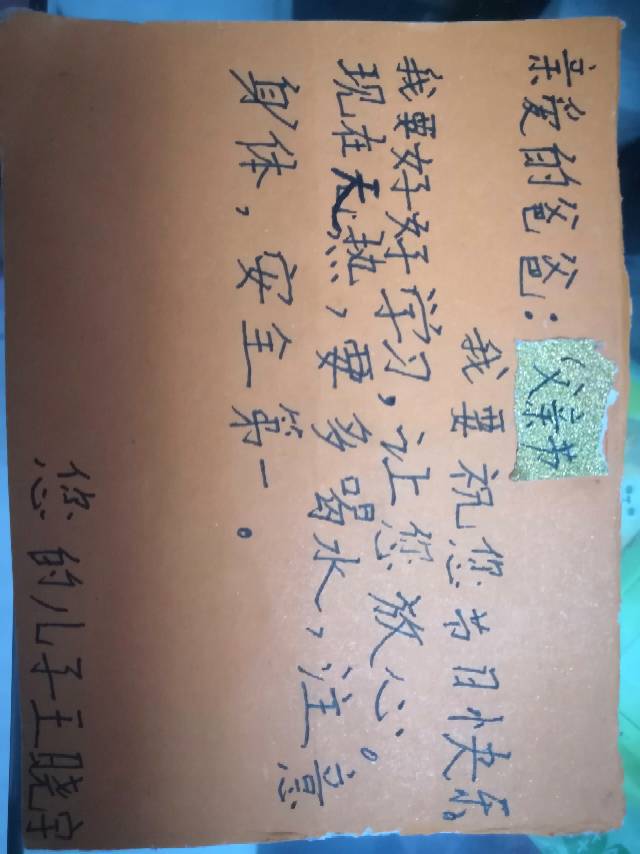 亲爱的爸爸：
父亲节
我要祝您节日快乐。
我要好好学习，让您放心。
现在天热，要多喝水，注意
身体，安全第一。
您的儿子王晓宇